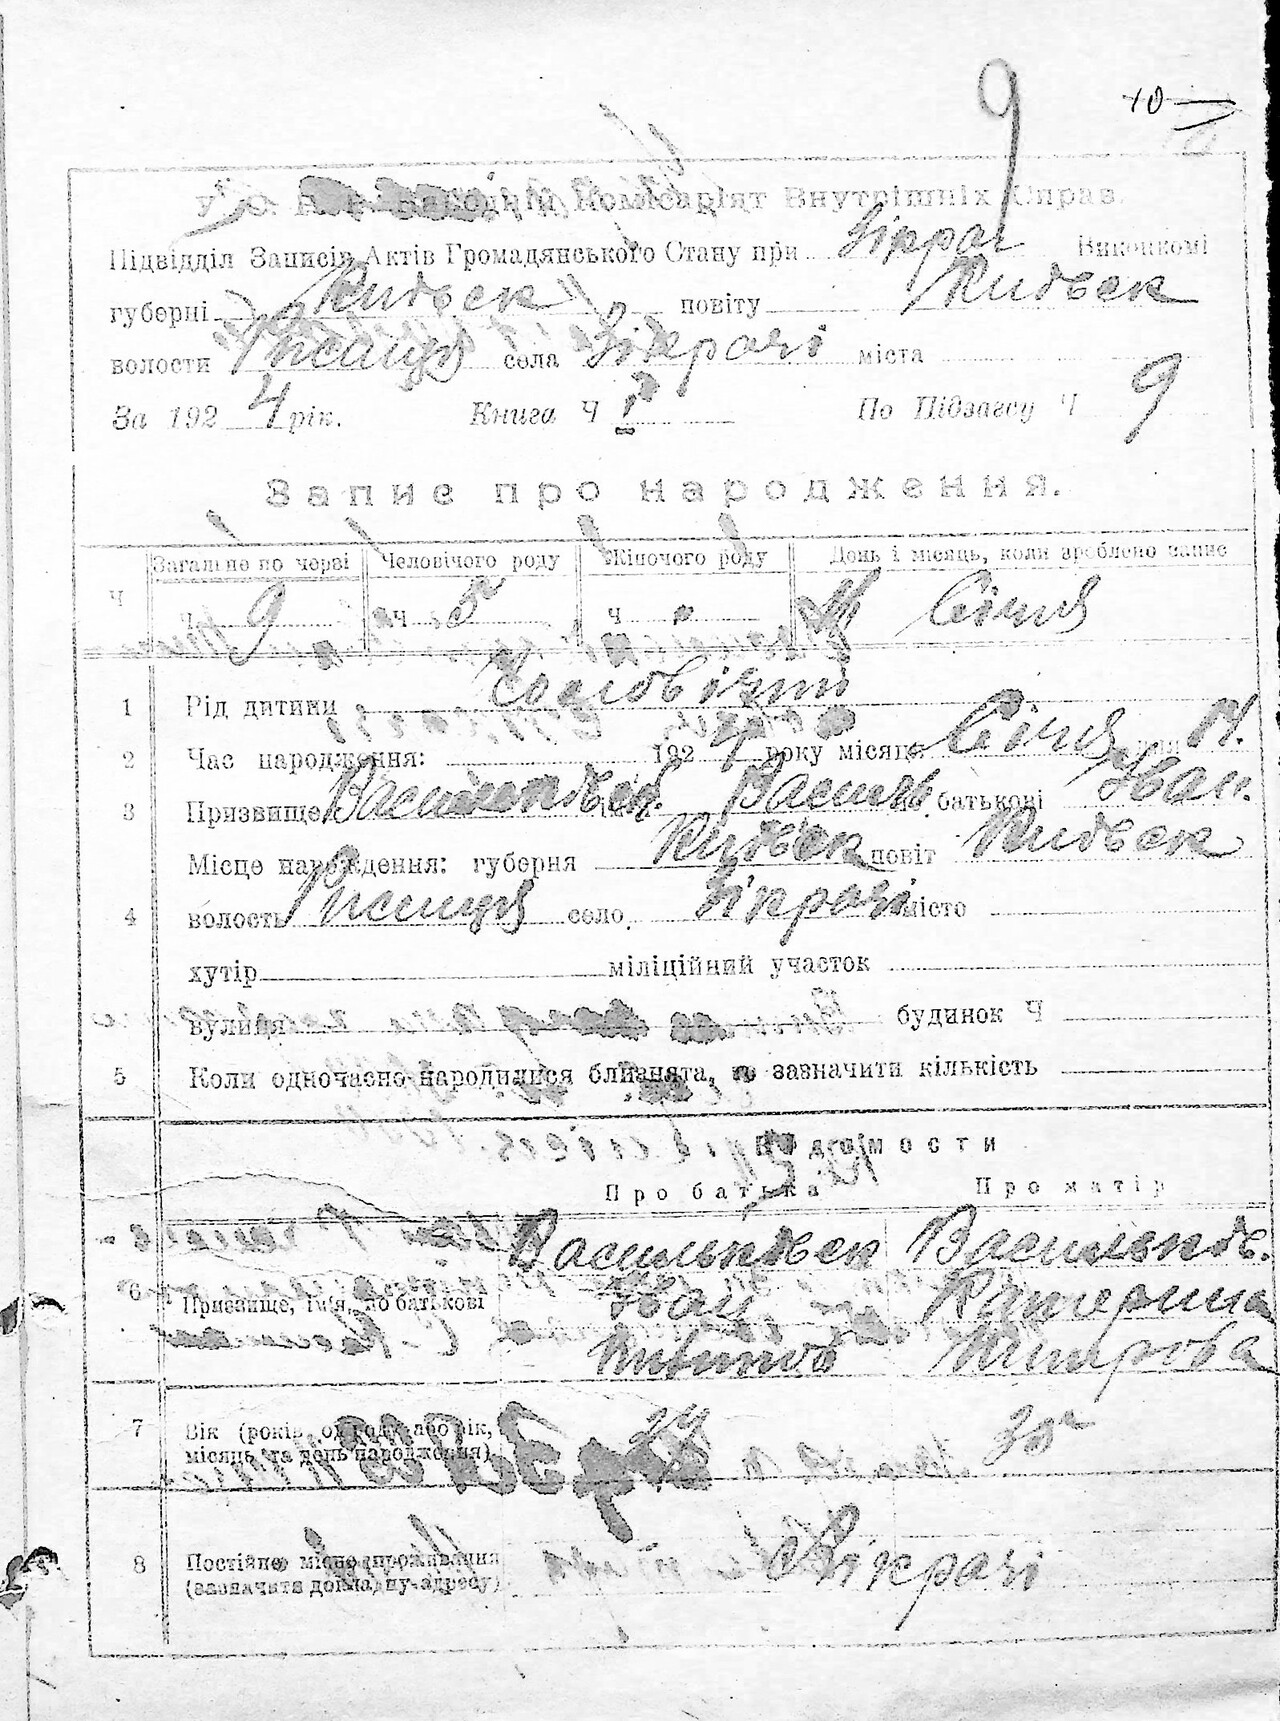 9 10
У. С. Народній Комісаріят Внутрішніх Справ.
Підвідділ Записів Актів Громадянського Стану при Зікрач Виконкомі
губерні Київск повіту Київск
волости села Зікрачі міста
За 1924 рік. Книга Ч По Підзагсу Ч 9
Запис про народження.
Ч Загальне по черзі Человічого роду Жіночого роду День і місяць, коли зроблено запис
Ч 9 Ч 5 Ч Січня
1 Рід дитини Чоловічий
2 Час народження: 1924 року місяця Січня дня
3 Призвище Васильківск. Василь по батькові Іван.
Місце народження: губерня Київск повіт Київск
4 волость село Зікрачі місто
хутір міліційний участок
вулиця будинок Ч
5 Коли одночасно народилися близнята, то зазначити кількість
Відомости
Про батька Про матір
Васильківск Васильків.
6 Призвище, імя, по батькові Іван Катерина
7 Вік (років, од роду або рік, 30
місяць та день народження)
8 Постійне місце проживання с Зікрачі
(зазначити докладну адресу)